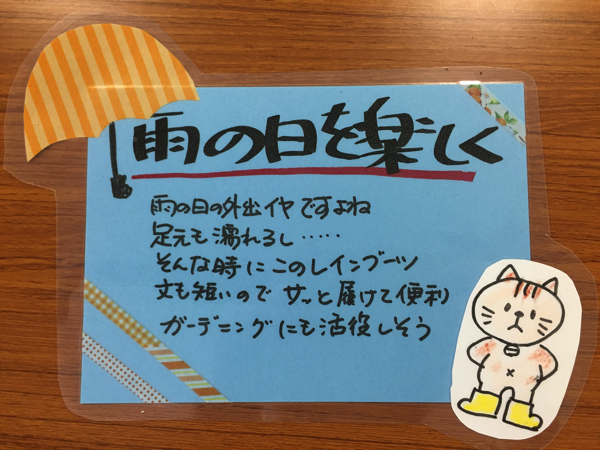 雨の日を楽しく
雨の日の外出イヤですよね
足元も濡れるし‥‥‥
そんな時にこのレインブーツ
丈も短いので サッと履けて便利
ガーデニングにも活役しそう